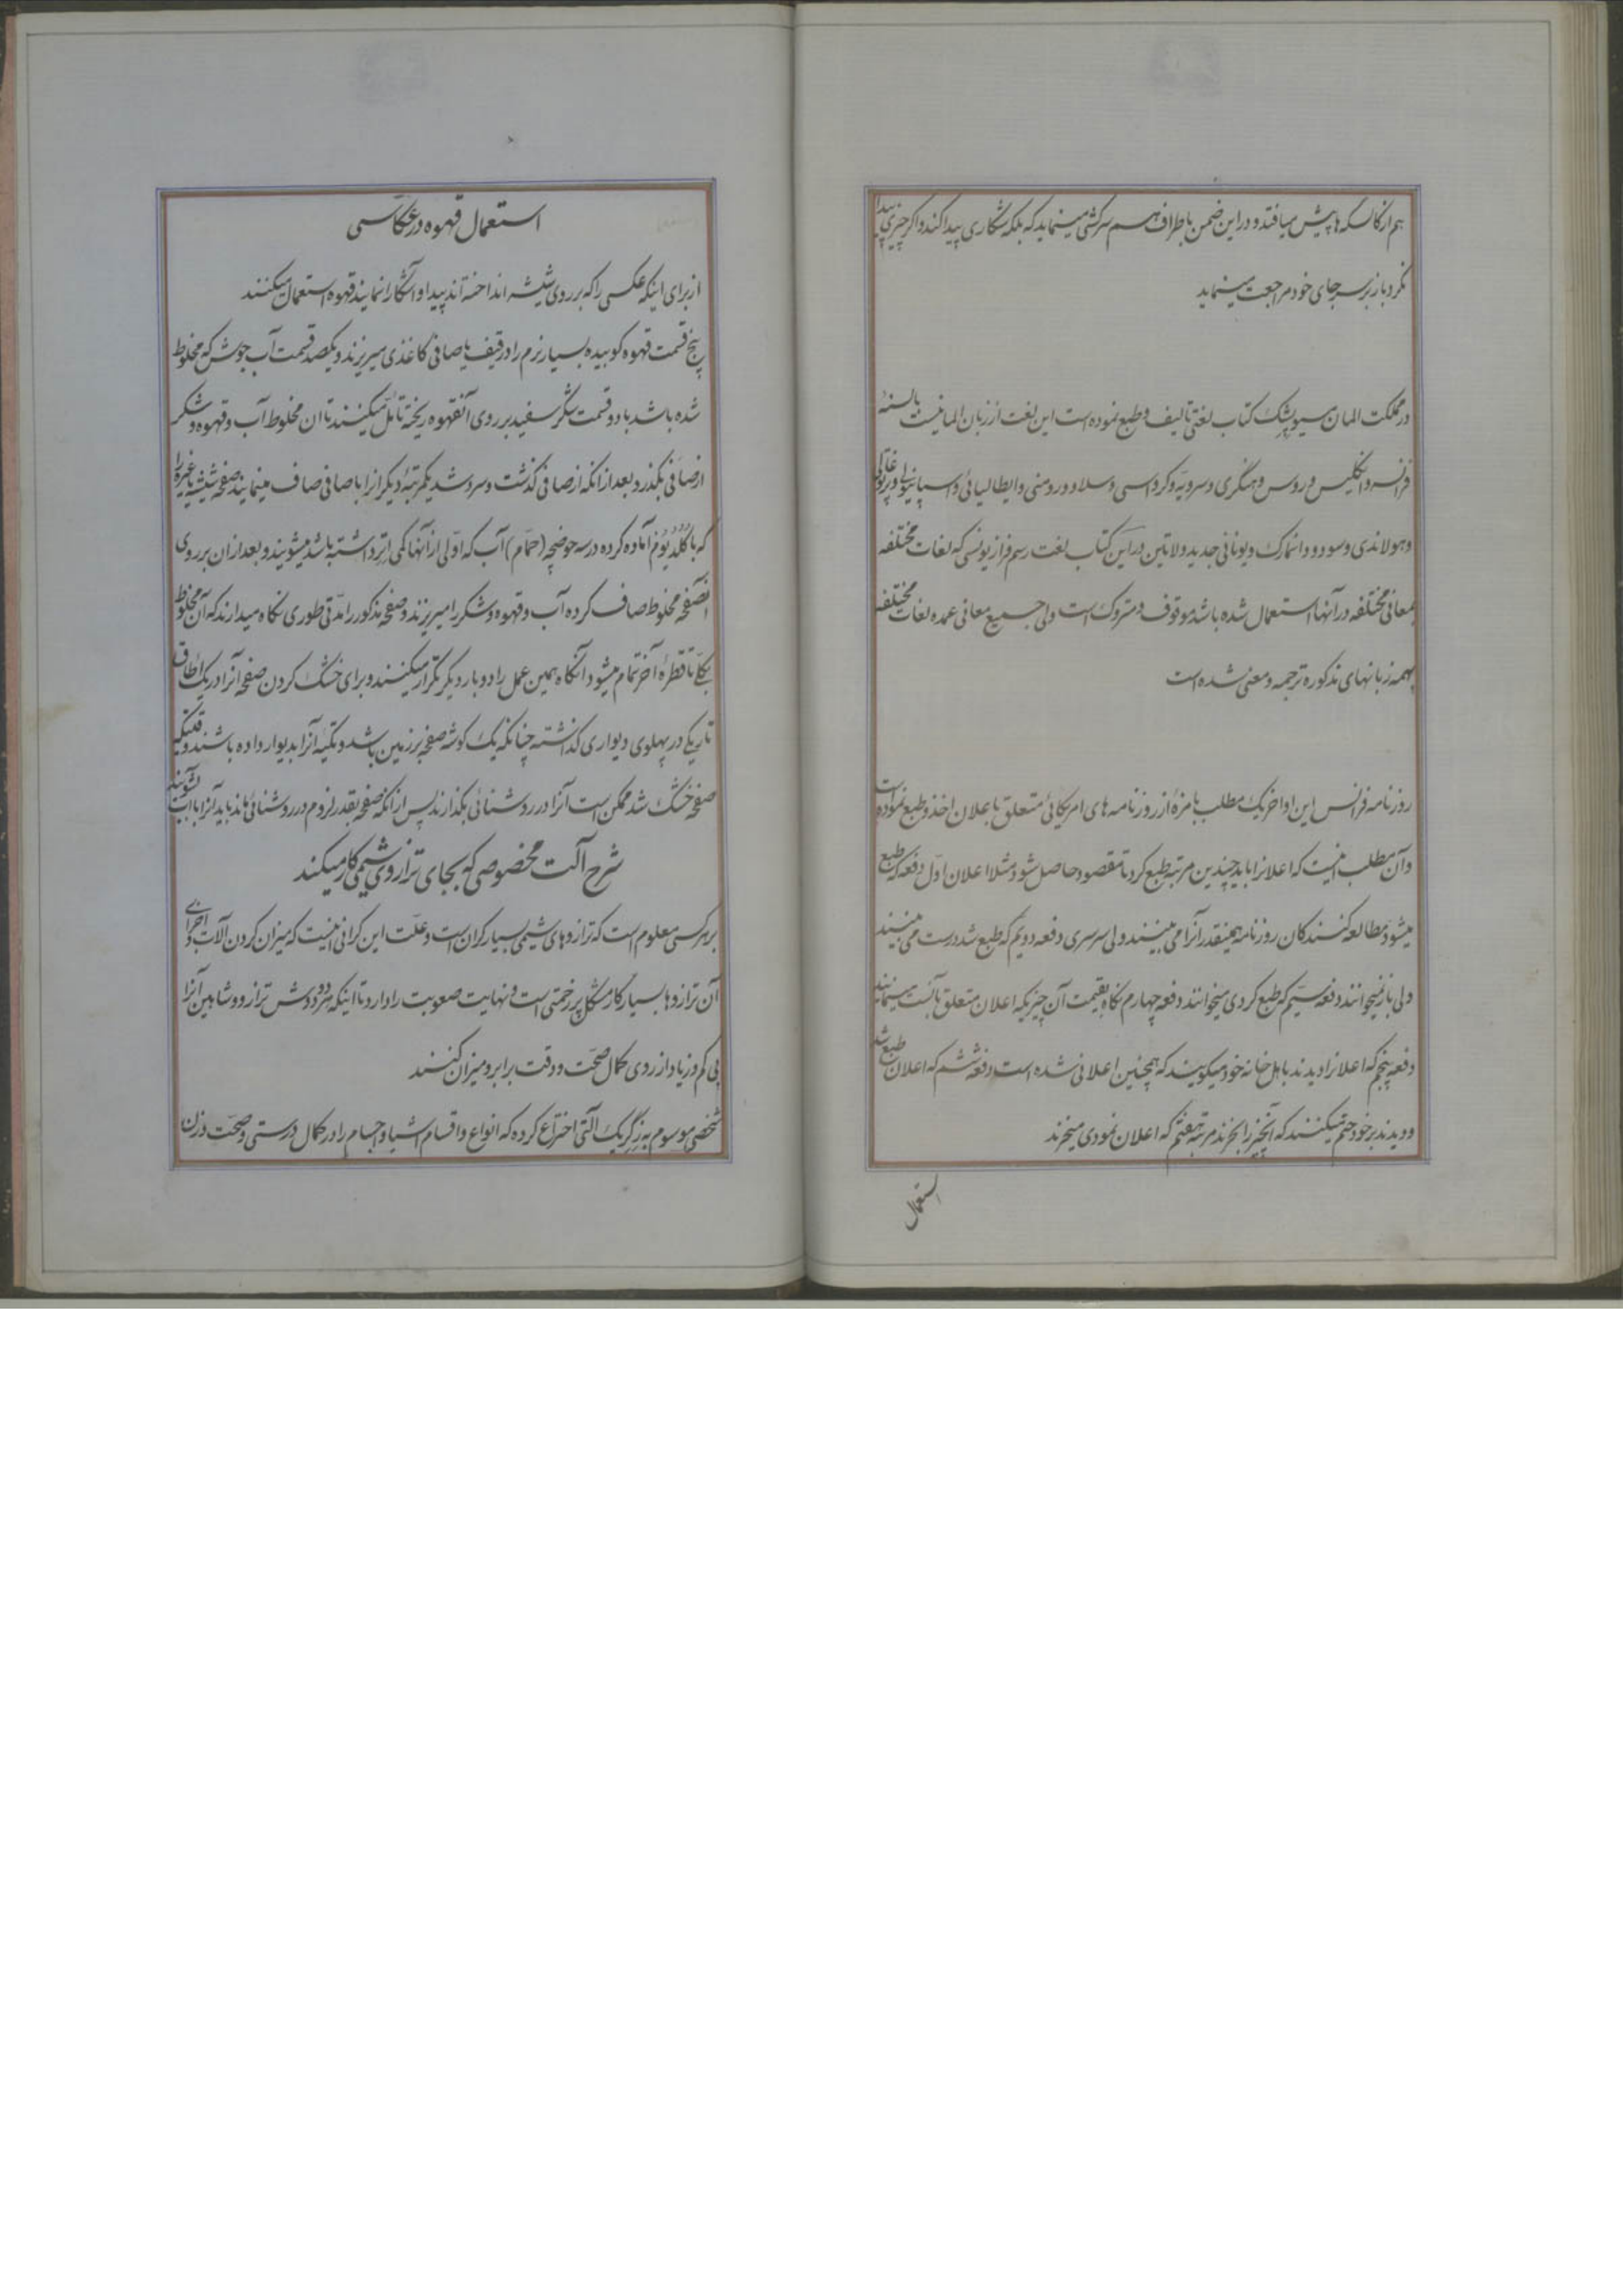 هم از کالسکه ها پیش میافتد و در این ضمن باطراف هم سرکشی مینماید که بلکه شکاری پیدا کند و اکر چیزی پیدا
نکرد باز بر سر جای خود مراجعت مینماید
در مملکت المان کتاب لغتی تالیف و طبع نموده است این لغت از زبان المانیست بالسنهٔ
فرانسه و انکلیس و روس و هنکری و سرویه و کرواسی و سلاو و رومنی و ایطالیائی و اسپانیولی و پرتوغالی
و هولاندی و سود و دانمارک و یونانی جدید و لاتین در این کتاب لغت رسم که لغات مختلفه
بمعانی مختلفه در آنها استعمال شده باشد موقوف و متروک است ولی جمیع معانی عمده لغات مختلفه
بهمه زبانهای مذکوره ترجمه و معنی شده است
روزنامه فرانس این اواخر یک مطلب بامزهٔ از روزنامه های امریکائی متعلق باعلان اخذ و طبع نموده است
و آن مطلب اینست که اعلانرا باید چندین مرتبه طبع کرد تا مقصود حاصل شود مثلا اعلان اول دفعه که طبع
میشود مطالعه کنندکان روزنامه همینقدر آنرا می بینند ولی سرسری دفعه دویم که طبع شد درست می بینند
ولی باز نمیخوانند دفعه سیم که طبع کردی میخوانند دفعه چهارم نکاه بقیمت آن چیزیکه اعلان متعلق بآنست مینمایند
دفعه پنجم که اعلانرا دیدند باهل خانه خود میکویند که همچنین اعلانی شده است دفعه ششم که اعلان طبع شد
و دیدند بر خود حتم میکنند که آنچیز را بخرند مرتبه هفتم که اعلان نمودی میخرند
استعمال
استعمال قهوه در عکاسی
از برای اینکه عکسی را که بر روی شیشه انداخته اند پیدا و آشکارا نمایند قهوه استعمال میکنند
پنج قسمت قهوه کوبیده بسیار نرم را در قیف یا صافی کاغذی میریزند و یکصد قسمت آب جوش که مخلوط
شده باشد با دو قسمت شکر سفید بر روی آنقهوه ریخته تأمل میکنند تا ان مخلوط آب و قهوه و شکر
از صافی بکذرد بعد از انکه از صافی کذشت و سرد شد یکمرتبهٔ دیکر انرا با صافی صاف مینمایند صفحه شیشه یا غیره را
که با کلدیوم آماده کرده در سه حوضچه (حمام) آب که اولی از آنها کمی اتر داشته باشد میشویند و بعد از ان بر روی
آنصفحه مخلوط صاف کرده آب و قهوه و شکر را میریزند و صفحه مذکور را مدتی طوری نکاه میدارند که آن مخلوط
بکلی تا قطرهٔ آخر تمام میشود آنکاه همین عمل را دوبار دیکر تکرار میکنند و برای خشک کردن صفحه آنرا در یک اطاق
تاریکی در پهلوی دیواری کذاشته چنانکه یک کوشه صفحه بر زمین باشد و تکیه آنرا بدیوار داده باشند وقتیکه
صفحه خشک شد ممکن است آنرا در روشنائی بکذارند پس از انکه صفحه بقدر لزوم در روشنائی ماند باید آنرا با آب بشویند
شرح آلت مخصوصی که بجای ترازوی شیمی کار میکند
بر هر کسی معلوم است که ترازوهای شیمی بسیار کران است و علت این کرانی اینست که میزان کردن آلات و اجزای
آن ترازوها بسیار کار مشکل پر زحمتی است و نهایت صعوبت را دارد تا اینکه هر دو دوش ترازو و شاهین آنرا
بی کم و زیاد از روی کمال صحت و دقت برابر و میزان کنند
شخصی موسوم به یک آلتی اختراع کرده که انواع و اقسام اشیا و اجسام را در کمال درستی و صحت وزن